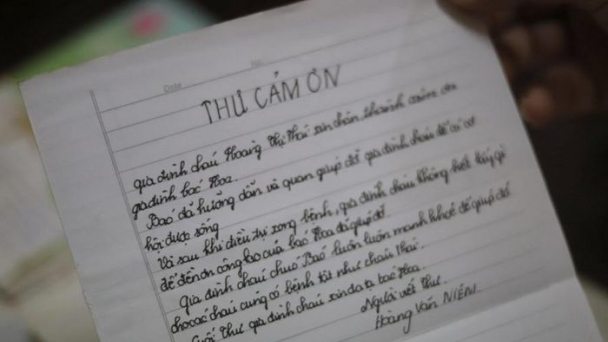 Date No
THƯ CẢM ƠN
Gia đình cháu Hoàng Thị Thái xin chân thành cảm ơn
gia đình bác Hoa.
Bác đã hướng dẫn và quan giúp đỡ gia đình cháu để có cơ
hội được sống
Và sau khi điều trị xong bệnh, gia đình cháu không biết lấy gì
để đền ơn công lao của bác Hoa đã giúp đỡ.
Gia đình cháu chúc Bác luôn luôn mạnh khoẻ để giúp đỡ
cho các cháu cũng có bệnh tật như cháu Thái.
Cuối thư gia đình cháu xin đa tạ bác Hoa.
Người viết thư.
Hoàng Văn NIÊN.